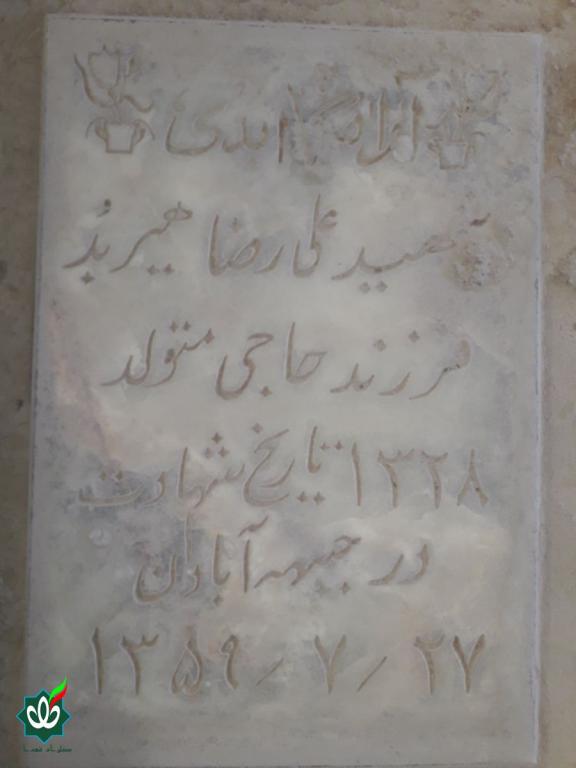 آرامگاه ابدی
شهید علی رضا هیربُد
فرزند حاجی متولد
۱۳۲۸ تاریخ شهادت
در جبهه آبادان
۲۷ / ۷ / ۱۳۵۹